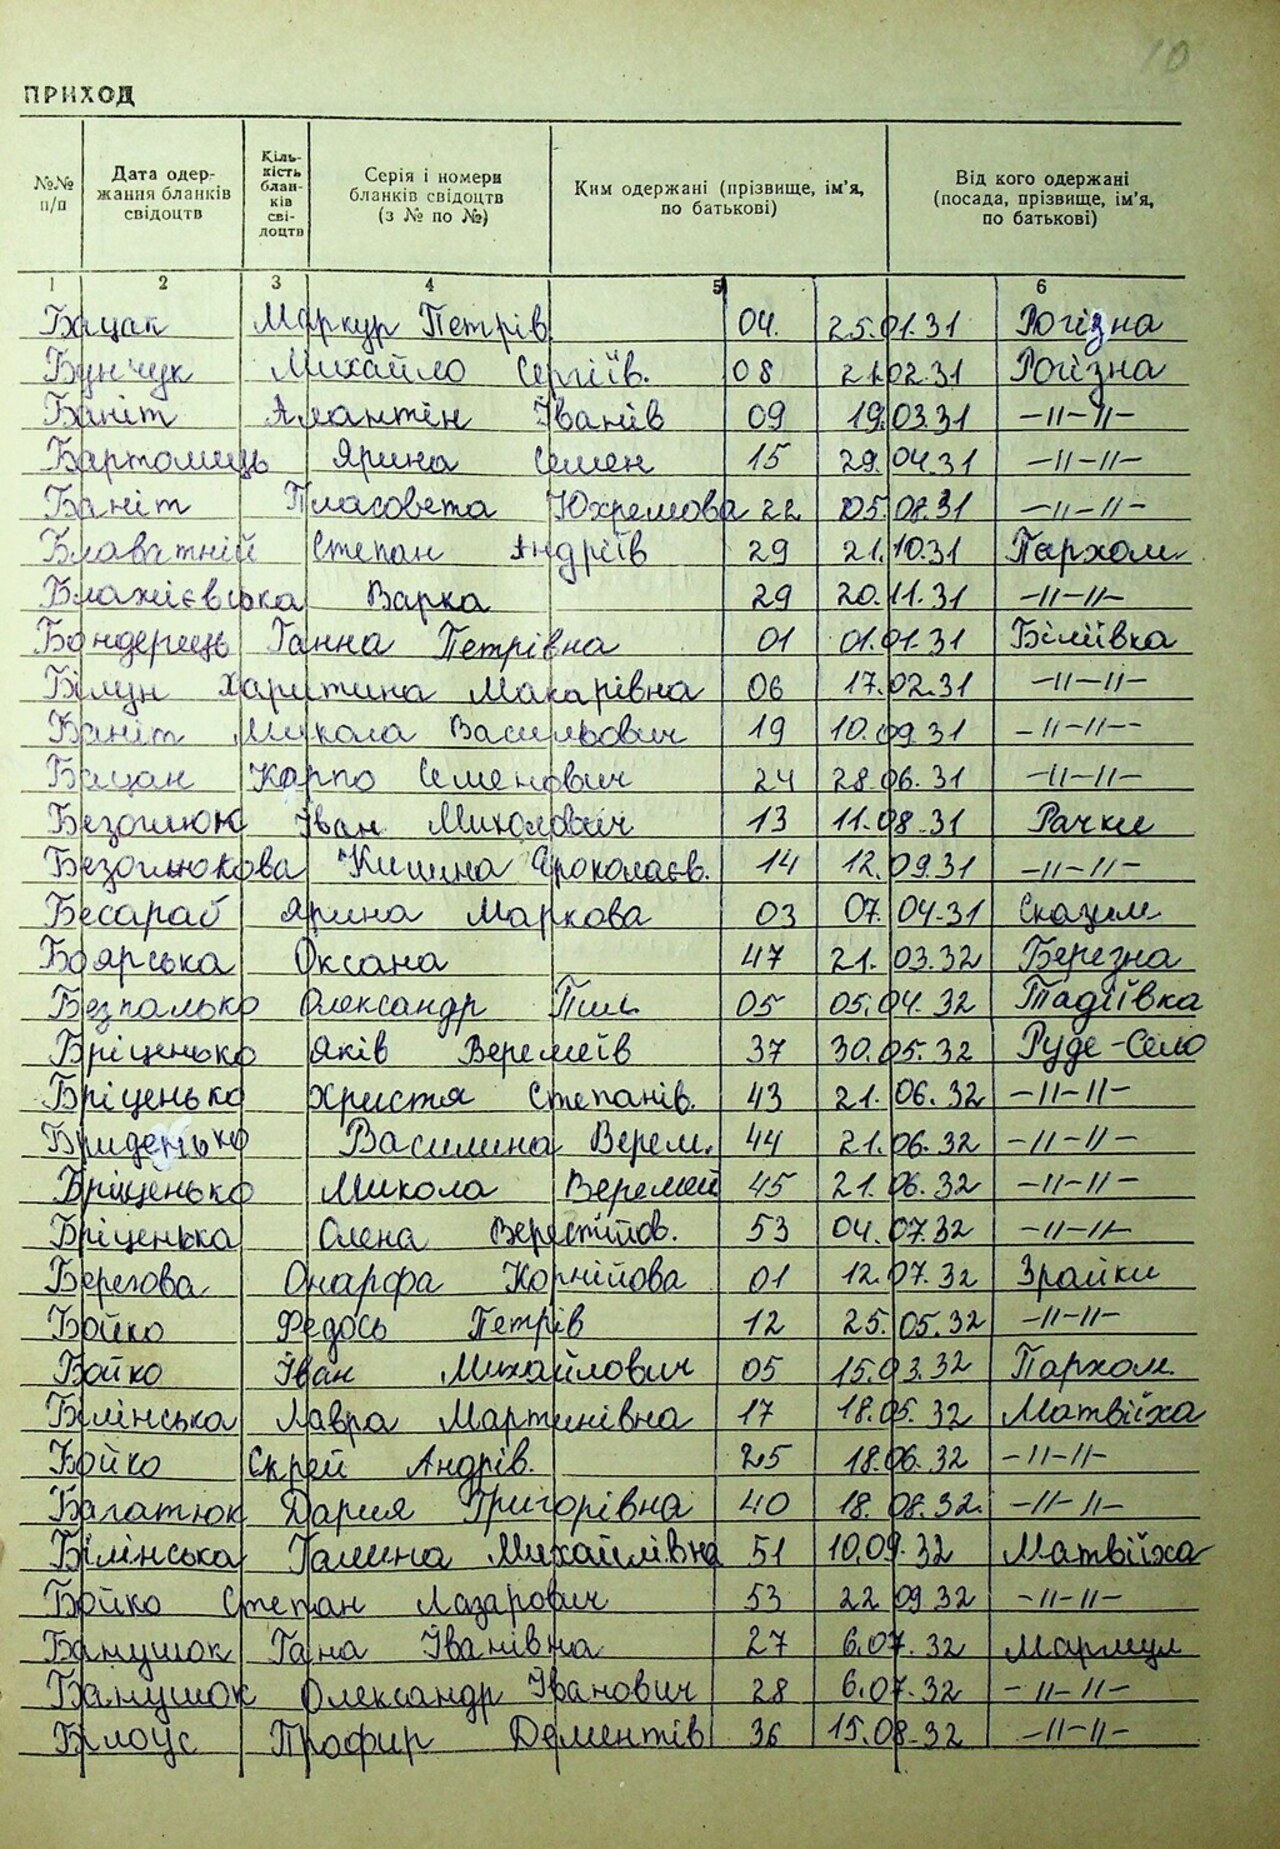 10
ПРИХОД
№№ п/п
Дата одер-
жання бланків
свідоцтв
Кіль-
кість
блан-
ків
сві-
доцтв
Серія і номери
бланків свідоцтв
(з № по №)
Ким одержані (прізвище, ім'я,
по батькові)
Від кого одержані
(посада, прізвище, ім'я,
по батькові)
1 2 3 4 5 6
Бацак Маркур Петрів 04. 25.01.31 Рогізна
Бунчук Михайло Сергіїв. 08 21.02.31 Рогізна
Баніт Амантін Іванів 09 19.03.31 -//-//-
Бартомиць Ярина Семен 15 29.04.31 -//-//-
Баніт Пласовета Юхремова 22 05.08.31 -//-//-
Блаватній Степан Андріїв 29 21.10.31 Пархом.
Блажієвська Варка 29 20.11.31 -//-//-
Бондерець Ганна Петрівна 01 01.01.31 Біліївка
Білун Харитина Макарівна 06 17.02.31 -//-//-
Баніт Микола Васильович 19 10.09.31 -//-//-
Бацан Карпо Семенович 24 28.06.31 -//-//-
Безоглюк Іван Миколович 13 11.08.31 Рачки
Безоглюкова 14 12.09.31 -//-//-
Бесараб Ярина Маркова 03 07.04.31 Сказим
Боярська Оксана 47 21.03.32 Березна
Безпалько Олександр Пил. 05 05.04.32 Тадіївка
Бріценько Яків Веремеїв 37 30.05.32 Руде-Село
Бріценько Христя Степанів. 43 21.06.32 -//-//-
Бриденько Василина Верем. 44 21.06.32 -//-//-
Бріценько Микола Веремей 45 21.06.32 -//-//-
Бріценька Олена 53 04.07.32 -//-//-
Берегова Онарфа Корнійова 01 12.07.32 Зрайки
Бойко Федось Петрів 12 25.05.32 -//-//-
Бойко Іван Михайлович 05 15.03.32 Пархом.
Білінська Лавра Мартинівна 17 18.05.32 Матвіїха
Бойко Скрей Андрів. 25 18.06.32 -//-//-
Багатюк Дария Григорівна 40 18.08.32. -//-//-
Білінська Галина Михайлівна 51 10.09.32 Матвіїха
Бойко Степан Лазарович 53 22 09.32 -//-//-
Банушок Гана Іванівна 27 6.07.32 Мармул
Банушок Олександр Іванович 28 6.07.32 -//-//-
Білоус Профир Дементів 36 15.08.32 -//-//-